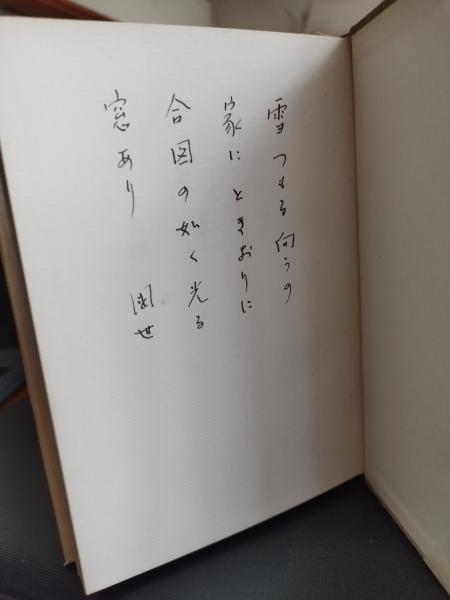 雪つもる向うの
家にときおりに
合図の如く光る
窓あり
国世